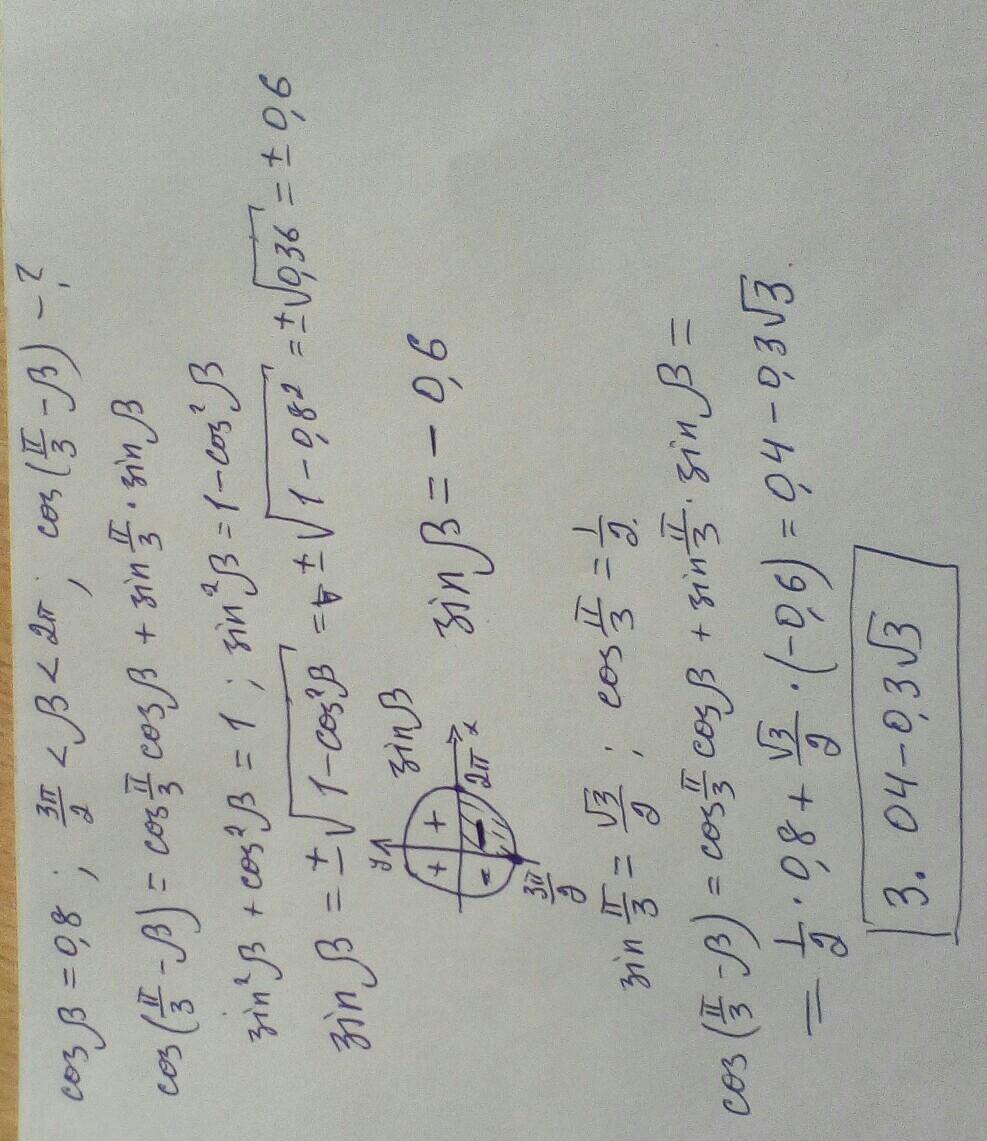 cosβ = 0,8 ; 3π/2 < β < 2π ; cos(π/3 - β) - ?
cos(π/3 - β) = cos π/3 cosβ + sin π/3 · sinβ
sin²β + cos²β = 1 ; sin²β = 1 - cos²β
sinβ = ± √(1 - cos²β) = ± √(1 - 0,8²) = ± √0,36 = ± 0,6
y sinβ
+ +
- -
2π x
3π/2
sinβ = - 0,6
sin π/3 = √3/2 ; cos π/3 = 1/2
cos(π/3 - β) = cos π/3 cosβ + sin π/3 · sinβ =
= 1/2 · 0,8 + √3/2 · (-0,6) = 0,4 - 0,3√3.
3. 04 - 0,3√3